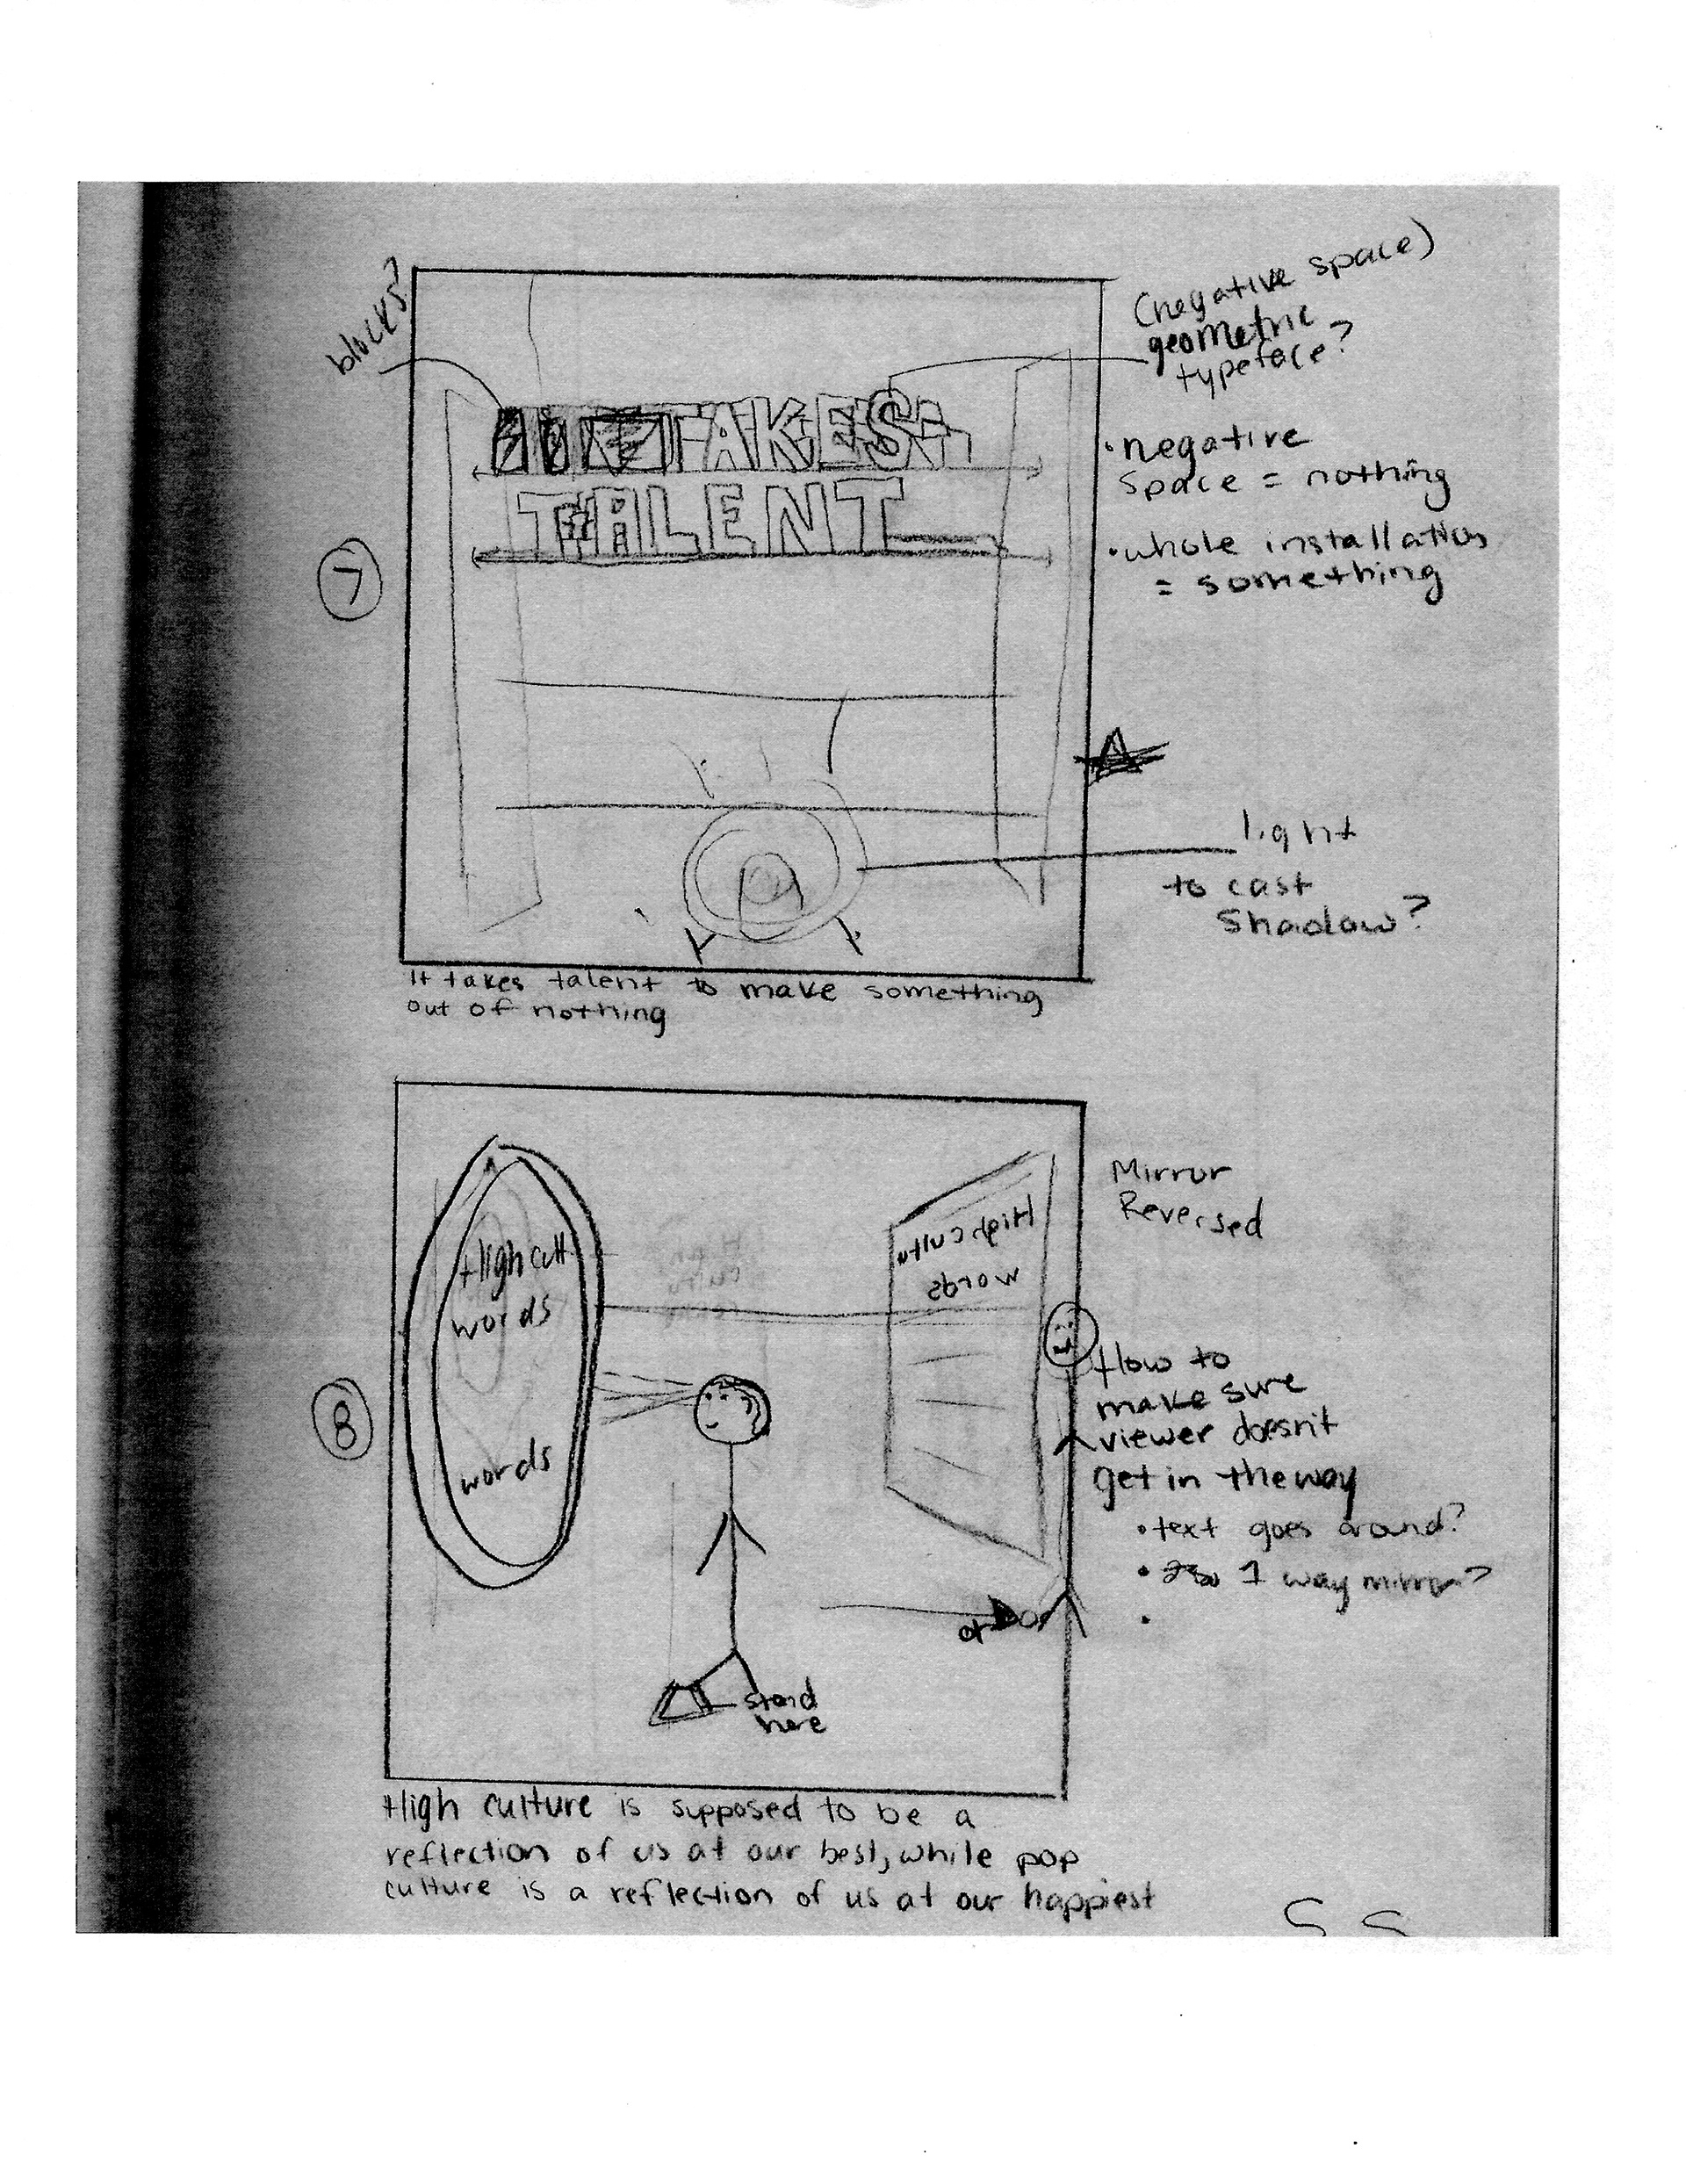 blocks?
(negative space)
geometric
typeface?
TAKES
TALENT
• negative
space = nothing
• whole installation
= something
7
light
to cast
shadow?
It takes talent to make something
out of nothing
Mirror
Reversed
High cult
words
words
High cultu
words
8
How to
make sure
viewer doesn't
get in the way
• text goes around?
• 1 way mirror?
•
or
stand
here
High culture is supposed to be a
reflection of us at our best, while pop
culture is a reflection of us at our happiest